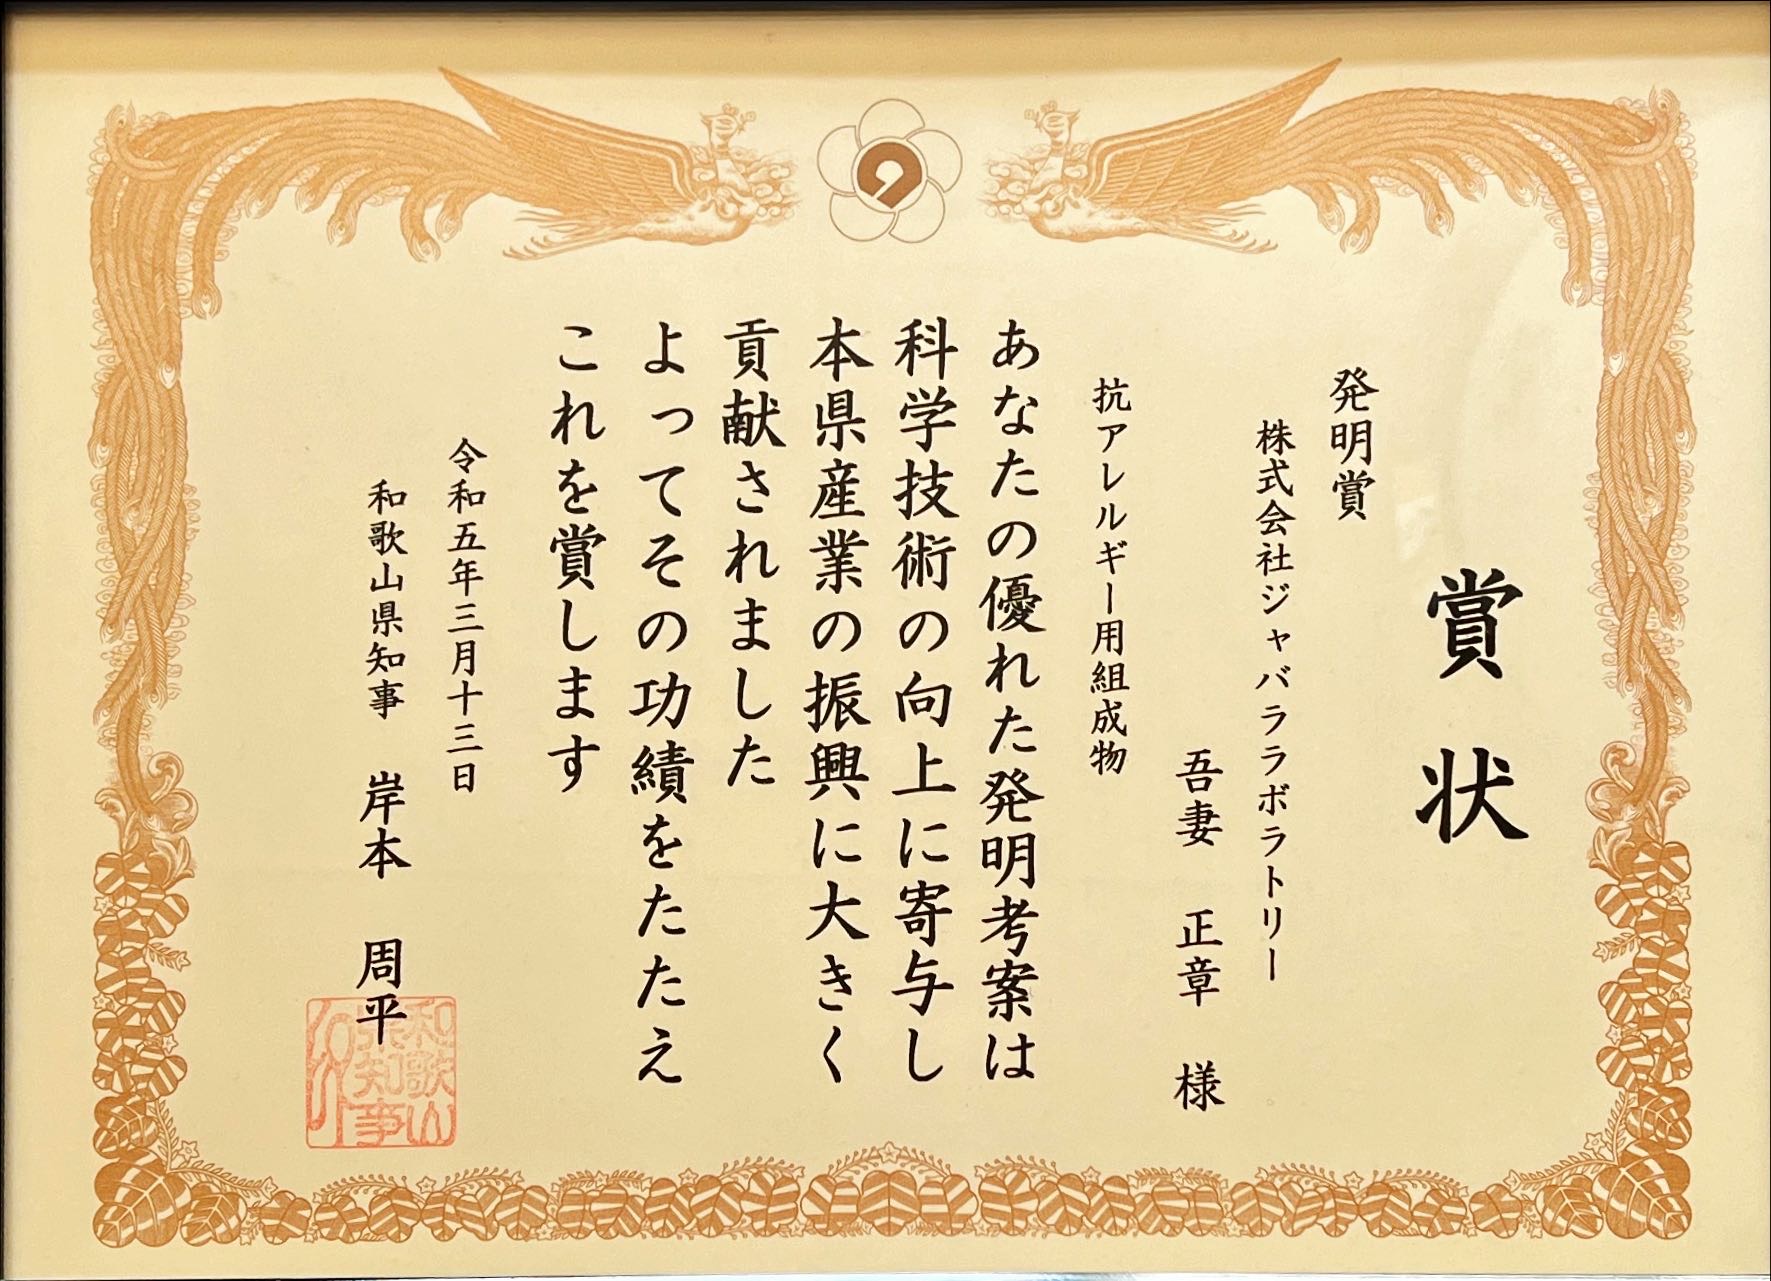 賞状
発明賞
株式会社ジャバララボラトリー
吾妻 正章 様
抗アレルギー用組成物
あなたの優れた発明考案は
科学技術の向上に寄与し
本県産業の振興に大きく
貢献されました
よってその功績をたたえ
これを賞します
令和五年三月十三日
和歌山県知事 岸本 周平
和歌山
県知事
印